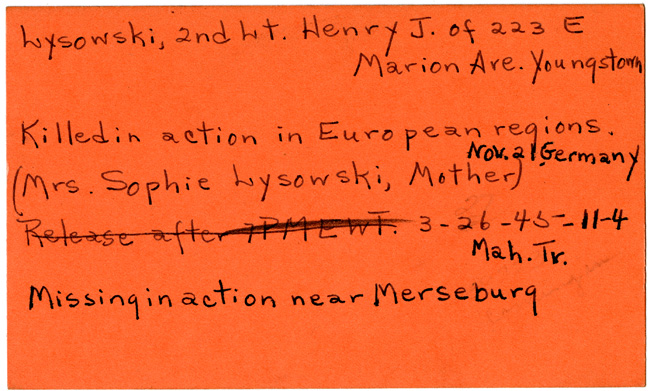 Lysowski, 2nd Lt. Henry J. of 223 E
Marion Ave. Youngstown
Killed in action in European regions.
Nov. 21 Germany
(Mrs. Sophie Lysowski, Mother)
Release after 7PM EWT. 3-26-45-11-4
Mah. Tr.
Missing in action near Merseburg